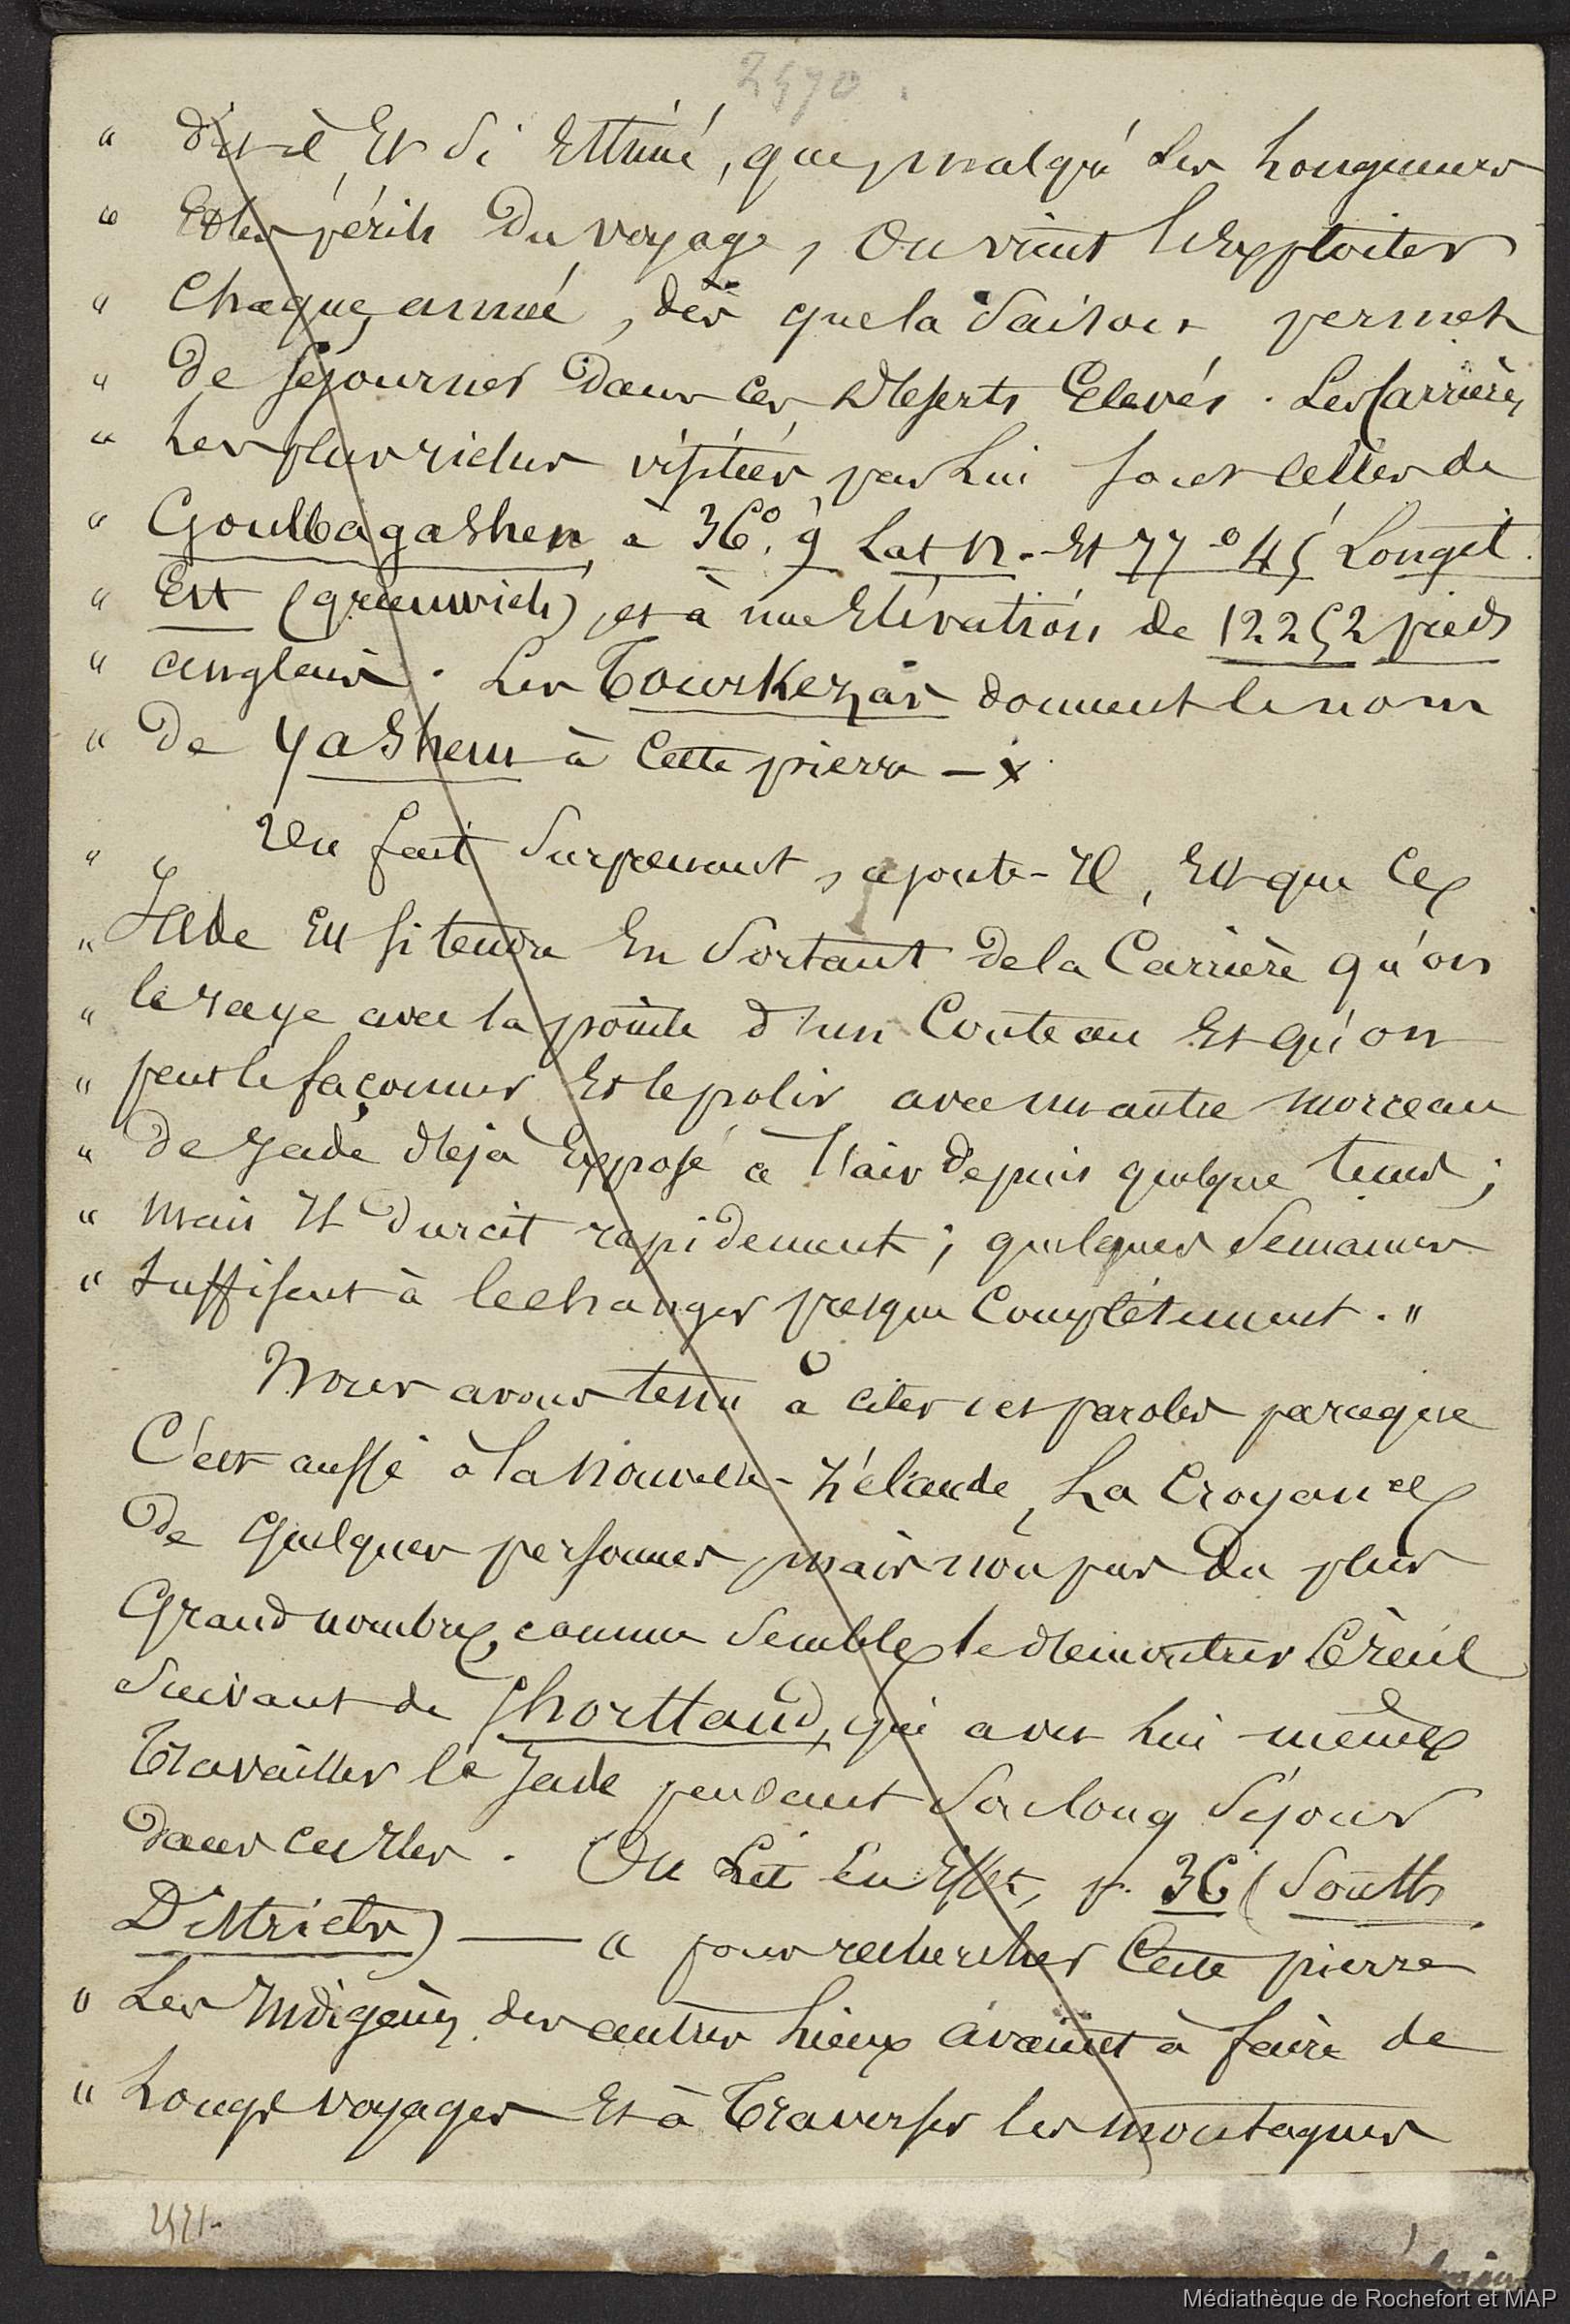 2570.
" divisé Et si Estimé, que, malgré Les Longueurs
" Et les périls Du voyage, On vient L'Exploiter
" Chaque année, dès que la Saison permet
" De séjourner Dans Ces Déserts Elevés. Les Carrières
" Les plus riches visitées par Lui sont Celles de
" Goulbagashen, à 36°. 9' Lat N. - Et 77° 45' Longit.
" Est (greenwich), et à une Elévation de 12252 pieds
" anglais. Les Tourkezas donnent le nom
" De Yashem à Cette pierre – x
" " Un fait Surprenant, ajoute-Il, Est que Ce
" Jade Est si tendre En Sortant De la Carrière qu'on
" le raye avec la pointe d'un Couteau Et qu'on
" peut le façonner Et le polir avec un autre morceau
" De Jade déjà Exposé à l'air Depuis quelque tems;
" Mais Il Durcit rapidement; quelques Semaines
" Suffisent à le changer presque Complétement. "
Nous avons tenu à citer ces paroles parceque
C'est aussi à la Nouvelle-Zélande, La Croyance
De quelques personnes, mais non pas Du plus
Grand nombre, comme Semble le démontrer Le récit
Suivant de Shortland, qui a vu Lui même
Travailler le Jade pendant Son long Séjour
Dans ces Iles. On Lit En Effet, p. 36 (South
Districts) — " pour rechercher Cette pierre
" Les Indigènes des autres Lieux avaient à faire de
" Longs voyages Et à Traverser les montagnes
2571.
Médiathèque de Rochefort et MAP